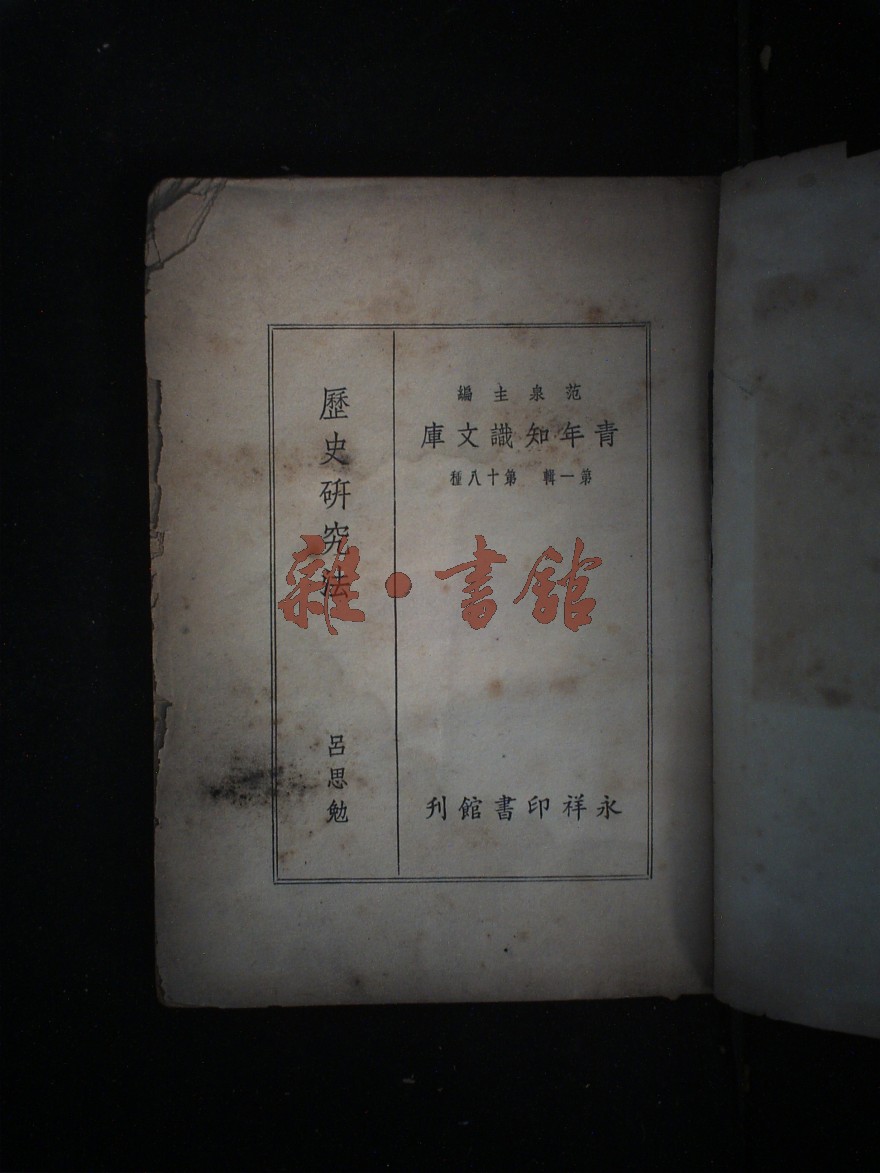 范泉主編
青年知識文庫
第一輯 第十八種
歷史研究法
呂思勉
永祥印書館刊
雜·書館